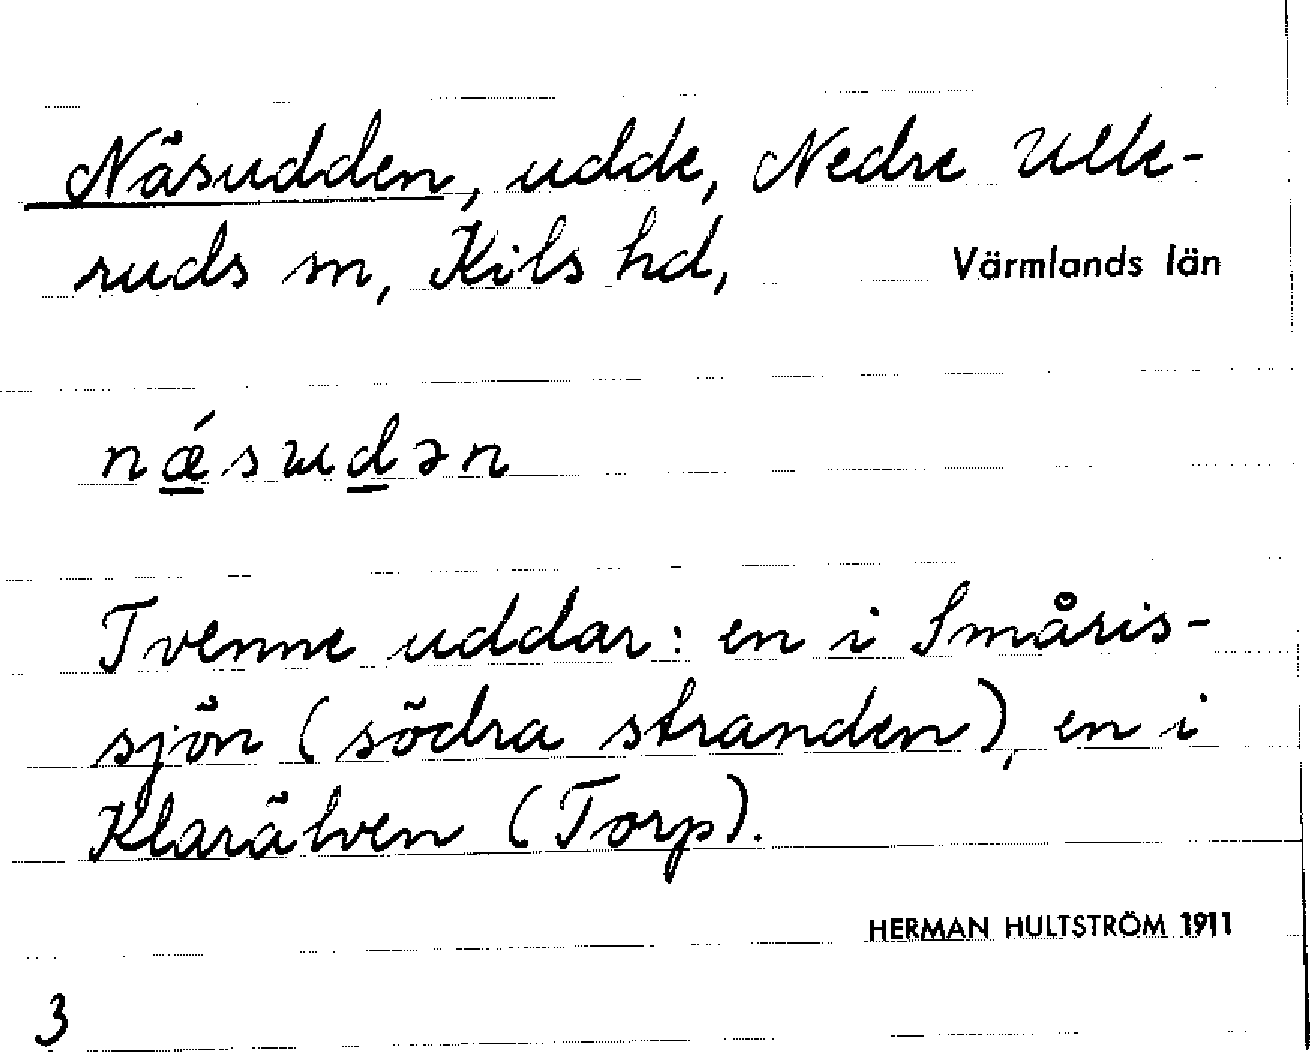 Näsudden, udde, Nedre Ulle-
ruds sn, Kils hd, Värmlands län
nǽsɯdən
Tvenne uddar: en i Småris-
sjön (södra stranden), en i
Klarälven (Torp).
HERMAN HULTSTRÖM 1911
3